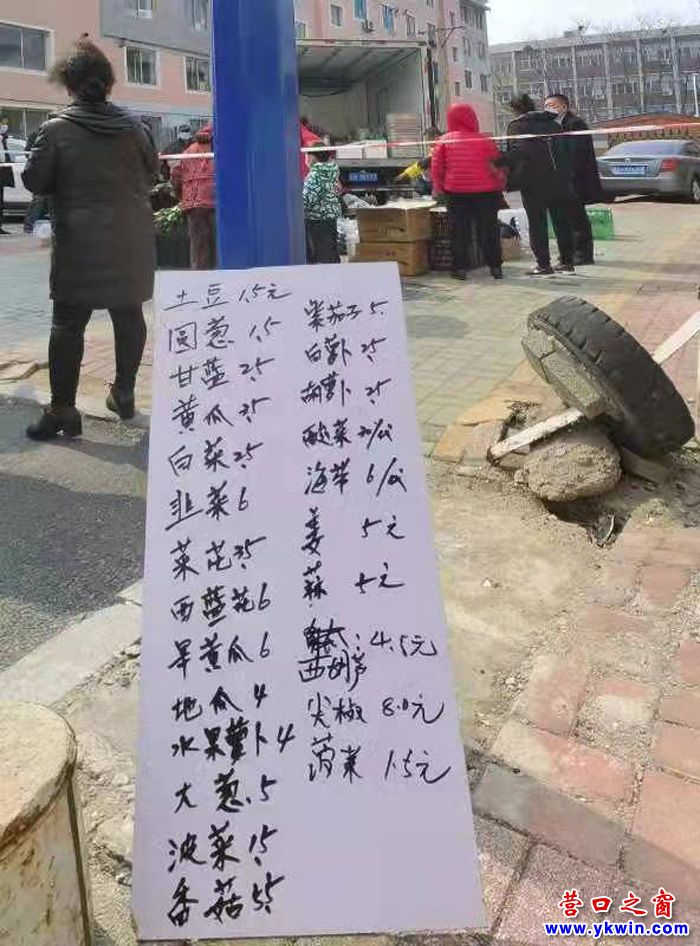 土豆 1.5元
圆葱 1.5
甘蓝 2.5
黄瓜 3.5
白菜 2.5
韭菜 6
菜花 3.5
西蓝花 6
旱黄瓜 6
地瓜 4
水果萝卜 4
大葱 .5
波菜 1.5
香菇 5.5
紫茄子 5.
白萝卜 2.5
胡萝卜 2.5
酸菜 /代
海带 6/代
姜 5元
蒜 5元
西胡芦 4.5元
尖椒 8.0元
茼菜 1.5元
营口之窗
www.ykwin.com